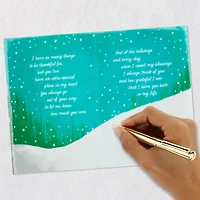 I have so many things
to be thankful for,
but you two
have an extra-special
place in my heart.
You always go
out of your way
to let me know
how much you care.
And at the holidays
and every day,
when I count my blessings,
I always think of you
and how grateful I am
that I have you both
in my life.